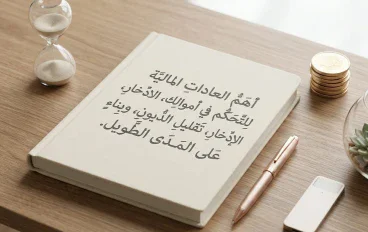 أَهَمُّ العاداتِ المالِيَّة
لِلتَّحَكُّم في أموالِك، الادِّخارِ
الإدِّخارِ تَقليلِ الدُّيونِ، وبِناءِ
عَلى المَدَى الطَّويل.